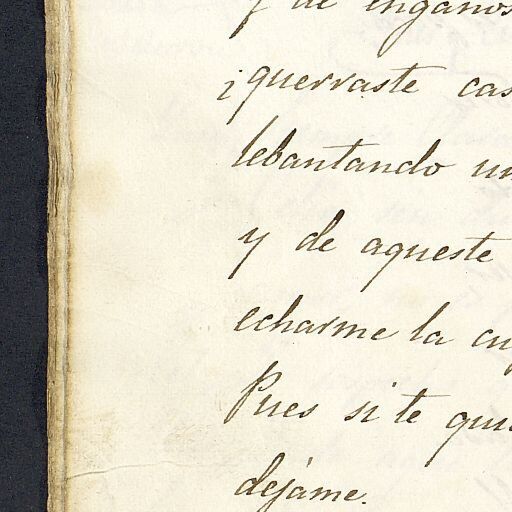 y de engaños
¡querraste cas
lebantando un
y de aqueste
echarme la cu
Pues si te qui
déjame.